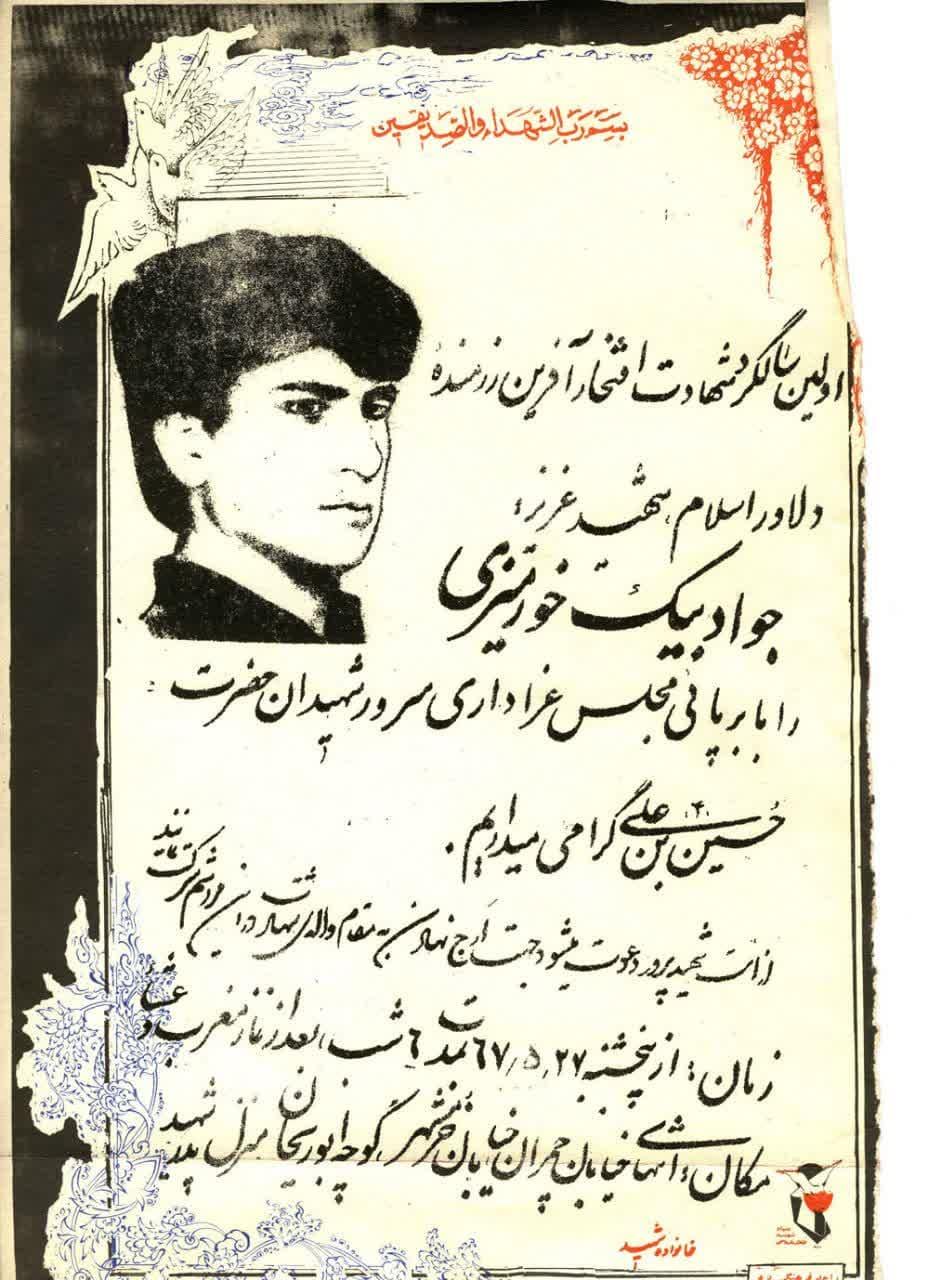 بسم رب الشهداء والصدیقین
اولین سالگرد شهادت افتخار آفرین رزمندهٔ
دلاور اسلام، شهید عزیز:
جواد بیک خورمیزی
را با برپائی مجلس عزاداری سرور شهیدان حضرت
حسین بن علی (ع) گرامی میداریم.
از امت شهیدپرور دعوت میشود جهت ارج نهادن به مقام والای شهادت در این مراسم شرکت نمایند
زمان: از پنجشنبه ۶۷/۵/۲۷ بمدت ۶ شب بعد از نماز مغرب و عشاء
مکان: انتهای خیابان چمران خیابان خرمشهر کوچه ابوریحان منزل پدر شهید
خانواده شهید